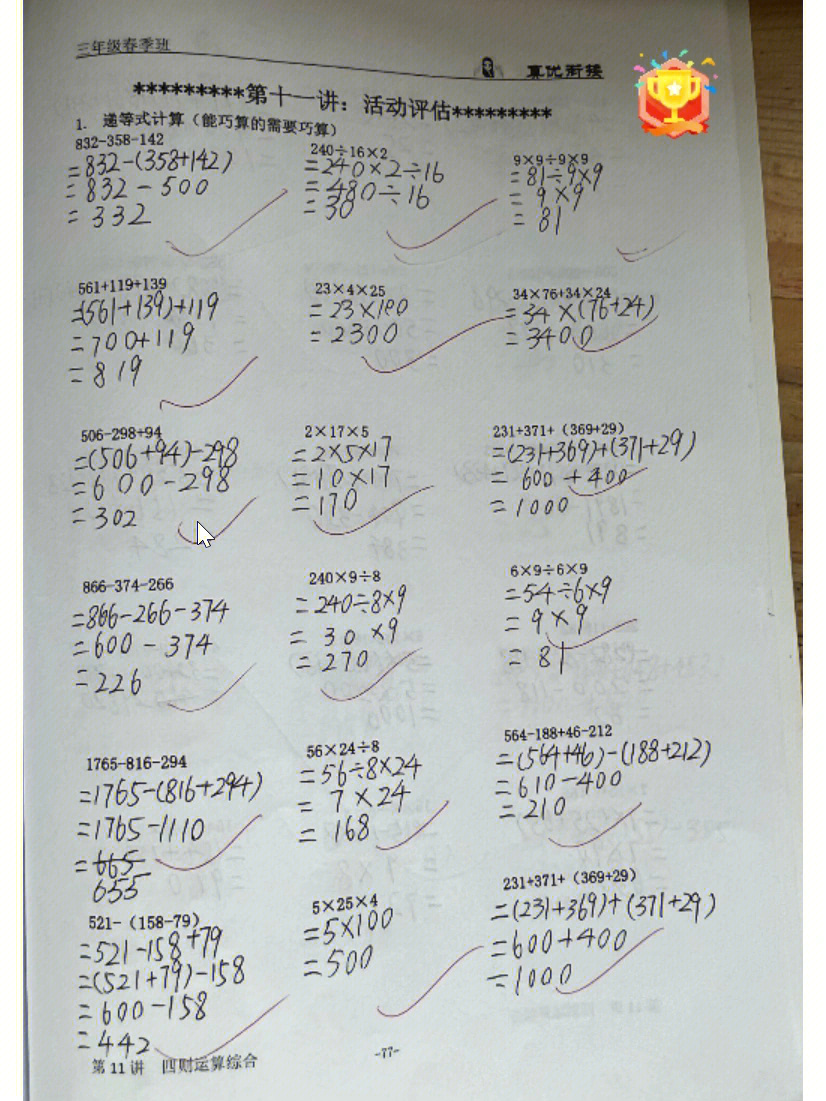 三年级春季班
真优衔接
*********第十一讲：活动评估*********
1. 递等式计算（能巧算的需要巧算）
832-358-142
=832-(358+142)
=832-500
=332
240÷16×2
=240×2÷16
=480÷16
=30
9×9÷9×9
=81÷9×9
=9×9
=81
561+119+139
=(561+139)+119
=700+119
=819
23×4×25
=23×100
=2300
34×76+34×24
=34×(76+24)
=3400
506-298+94
=(506+94)-298
=600-298
=302
2×17×5
=2×5×17
=10×17
=170
231+371+（369+29）
=(231+369)+(371+29)
=600+400
=1000
866-374-266
=866-266-374
=600-374
=226
240×9÷8
=240÷8×9
=30×9
=270
6×9÷6×9
=54÷6×9
=9×9
=81
1765-816-294
=1765-(816+294)
=1765-1110
=665
655
56×24÷8
=56÷8×24
=7×24
=168
564-188+46-212
=(564+46)-(188+212)
=610-400
=210
521-（158-79）
=521-158+79
=(521+79)-158
=600-158
=442
5×25×4
=5×100
=500
231+371+（369+29）
=(231+369)+(371+29)
=600+400
=1000
第 11 讲 四则运算综合
-77-